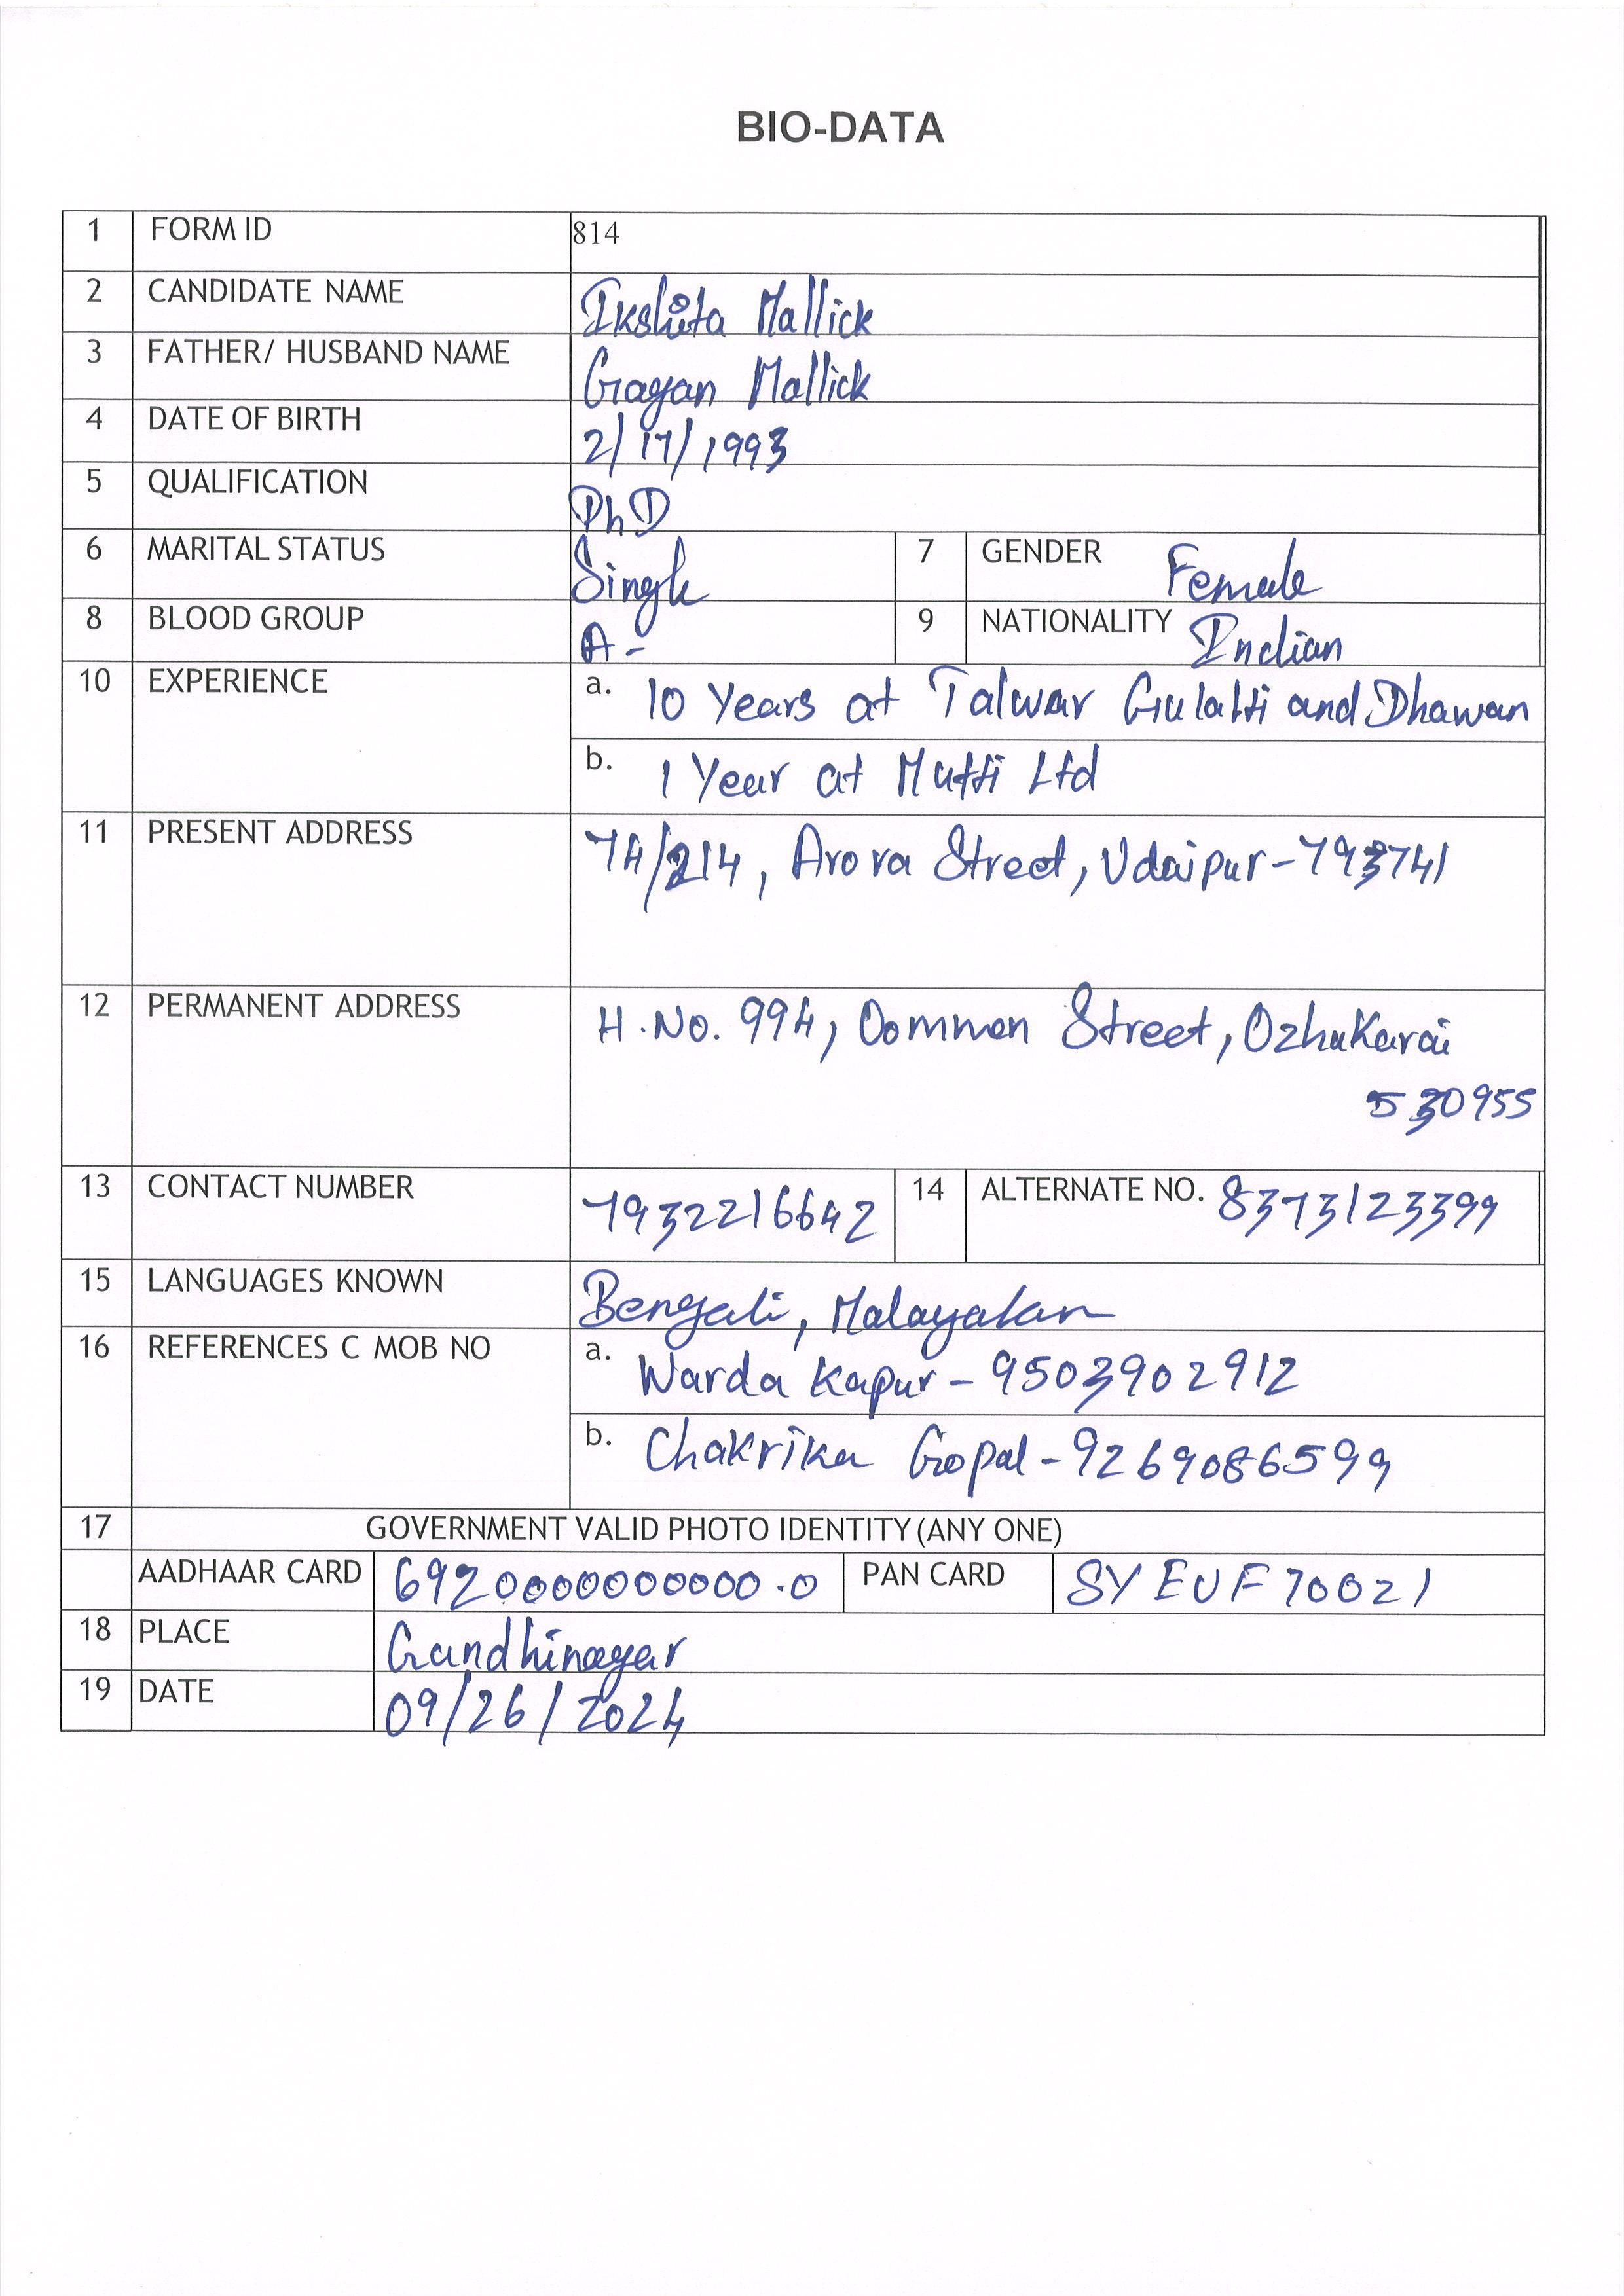 BIO-DATA
1 FORM ID 814
2 CANDIDATE NAME Ikshita Mallick
3 FATHER/ HUSBAND NAME Gagan Mallick
4 DATE OF BIRTH 2/17/1993
5 QUALIFICATION PhD
6 MARITAL STATUS Single 7 GENDER Female
8 BLOOD GROUP A- 9 NATIONALITY Indian
10 EXPERIENCE a. 10 Years at Talwar Gulatti and Dhawan
b. 1 Year at Mutti Ltd
11 PRESENT ADDRESS 74/214, Arora Street, Udaipur-793741
12 PERMANENT ADDRESS H.No. 994, Oommen Street, Ozhukarai
530955
13 CONTACT NUMBER 7932216642 14 ALTERNATE NO. 8373123399
15 LANGUAGES KNOWN Bengali, Malayalam
16 REFERENCES C MOB NO a. Warda Kapur - 9503902912
b. Chakrika Gopal - 9269086599
17 GOVERNMENT VALID PHOTO IDENTITY (ANY ONE)
AADHAAR CARD 6920000000000.0 PAN CARD SYEUF70021
18 PLACE Gandhinagar
19 DATE 09/26/2024